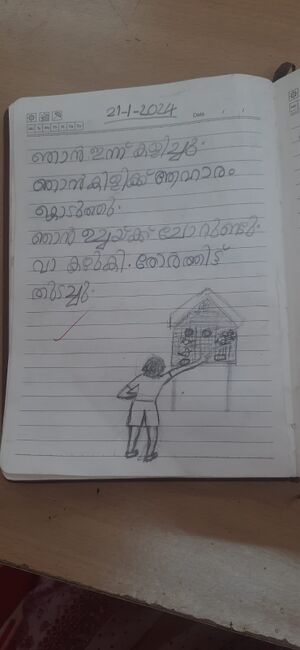 21-1-2024
Date
ഞാൻ ഇന്ന് കളിച്ചു.
ഞാൻ കിളിക്ക് ആഹാരം
കൊടുത്തു.
ഞാൻ ഉച്ചയ്ക്ക് ചോറുണ്ടു.
വാ കഴുകി. തോർത്തിട്ട്
തുടച്ചു.